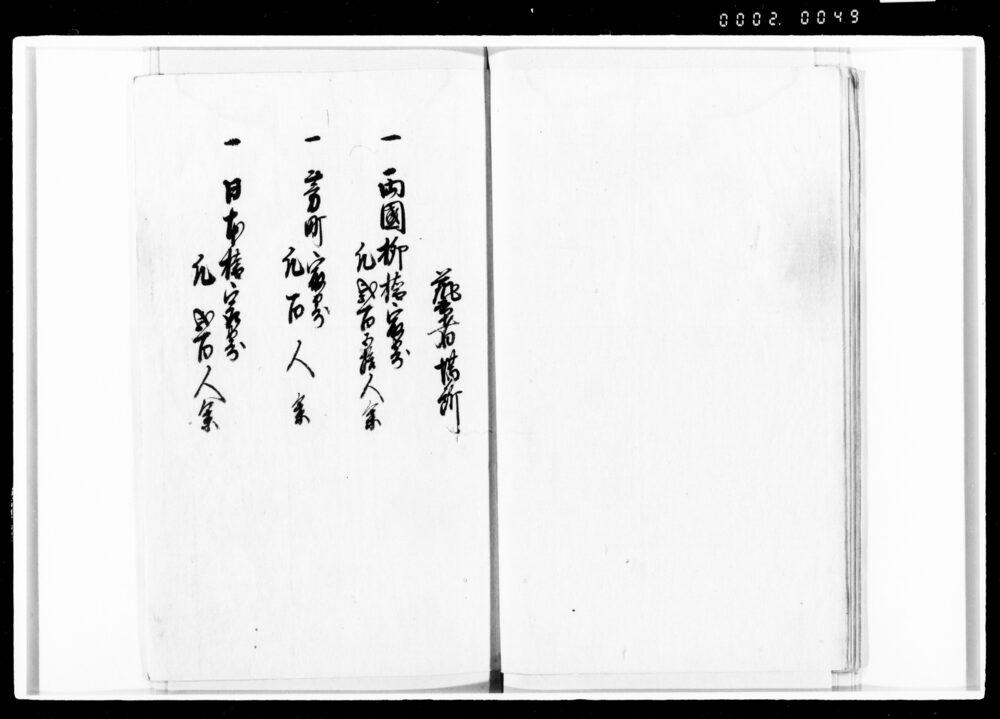 0002. 0049
藝者場所
一 両國柳橋最寄
凡弐百五拾人余
一 芳町最寄
凡百人余
一 日本橋最寄
凡弐百人余